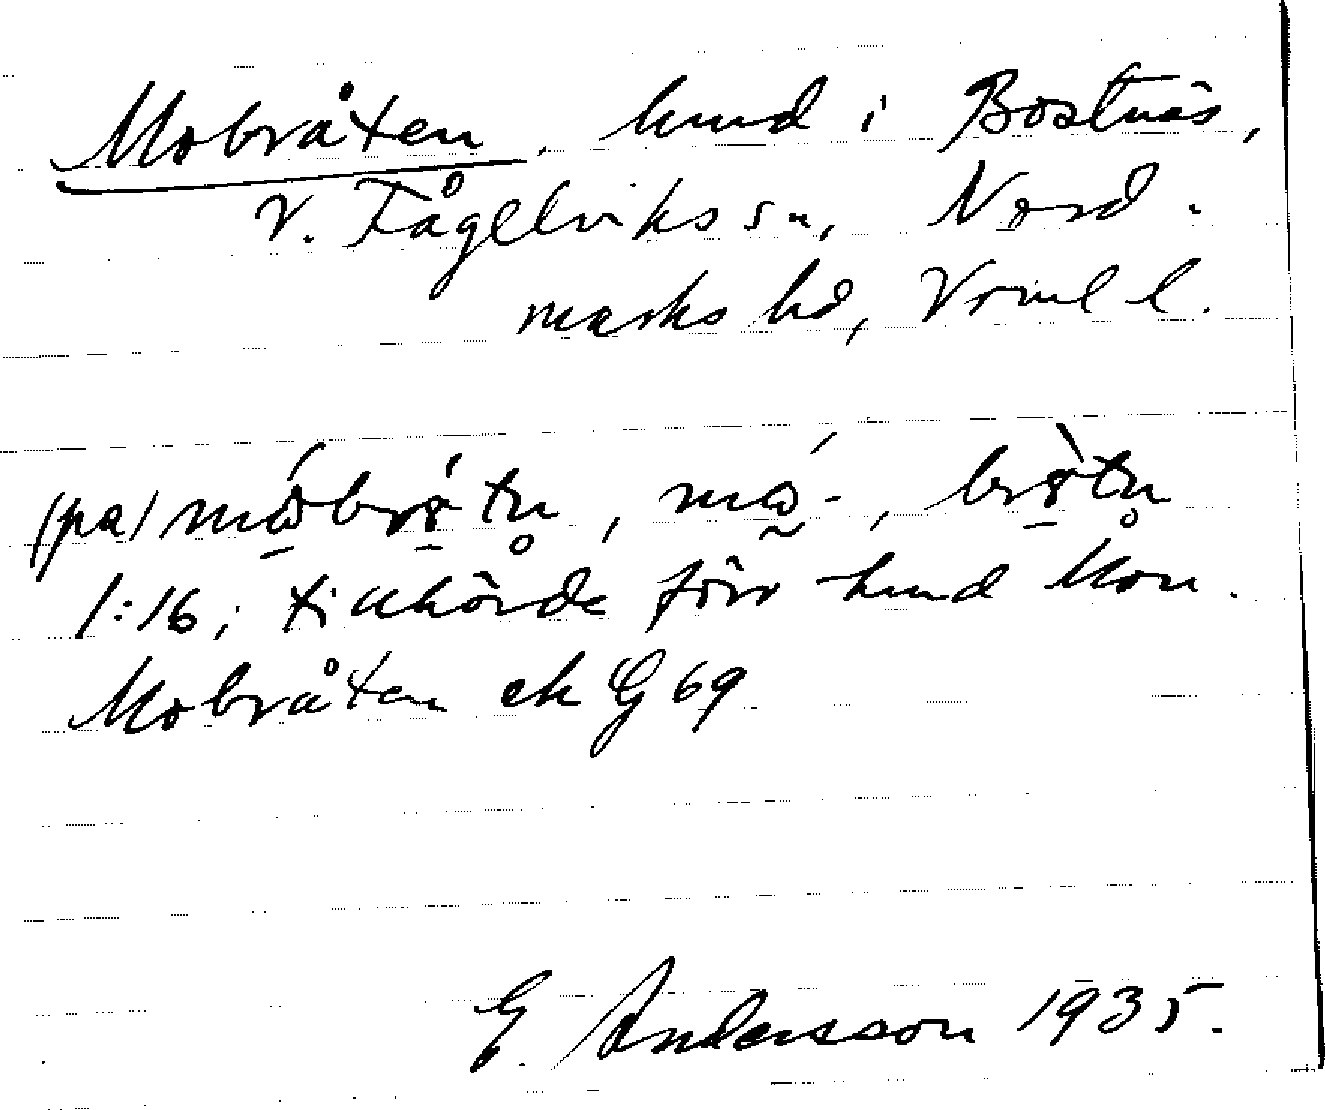 Mobråten, hmd i Bostnäs,
V. Fågelviks sn, Nord-
marks hd, Vrml l.
(pa)
1:16; tillhörde förr hmd Mon.
Mobråten ek G 69
G. Andersson 1935.